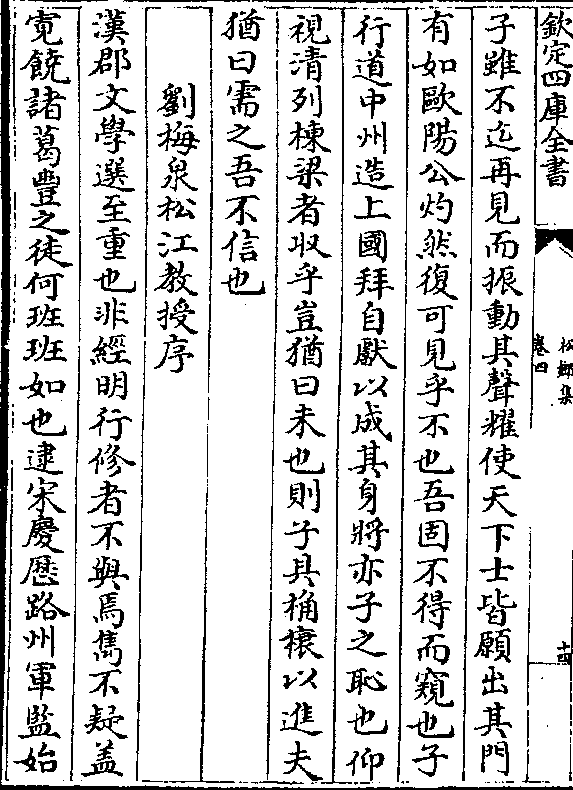 欽定四庫全書
松鄉集
卷四
十四
子雖不迄再見而振動其聲耀使天下士皆願出其門
有如歐陽公灼然復可見乎不也吾固不得而窺也子
行道中州造上國拜自獻以成其身將亦子之恥也仰
視清列棟梁者取乎豈猶曰未也則子具桷榱以進夫
猶曰需之吾不信也
劉梅泉松江教授序
漢郡文學選至重也非經明行修者不與焉雋不疑盖
寛饒諸葛豐之徒何班班如也逮宋慶厯路州軍監始